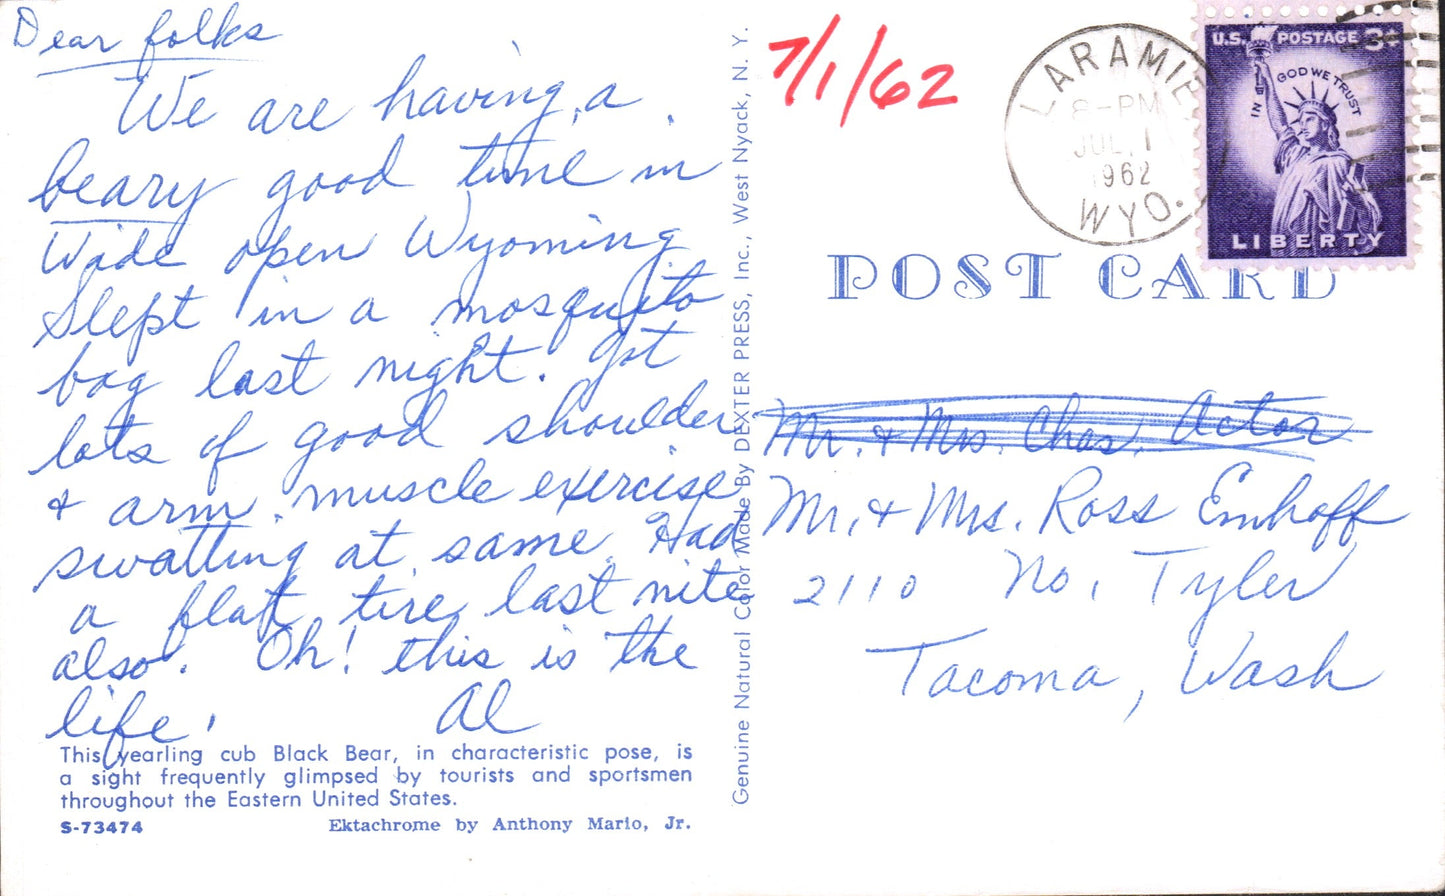 Dear folks
We are having a
beary good time in
Wide open Wyoming
Slept in a mosquito
bag last night. Got
lots of good shoulder
& arm muscle exercise
swatting at same. Had
a flat tire last nite
also. Oh! this is the
life! Al
This yearling cub Black Bear, in characteristic pose, is
a sight frequently glimpsed by tourists and sportsmen
throughout the Eastern United States.
S-73474 Ektachrome by Anthony Mario, Jr.
Genuine Natural Color Made By DEXTER PRESS, Inc., West Nyack, N. Y.
7/1/62
LARAMIE
8-PM
JUL 1
1962
WYO.
U.S. POSTAGE 3¢
IN GOD WE TRUST
LIBERTY
POST CARD
Mr. & Mrs. Chas. Actor
Mr. & Mrs. Ross Emhoff
2110 No. Tyler
Tacoma, Wash